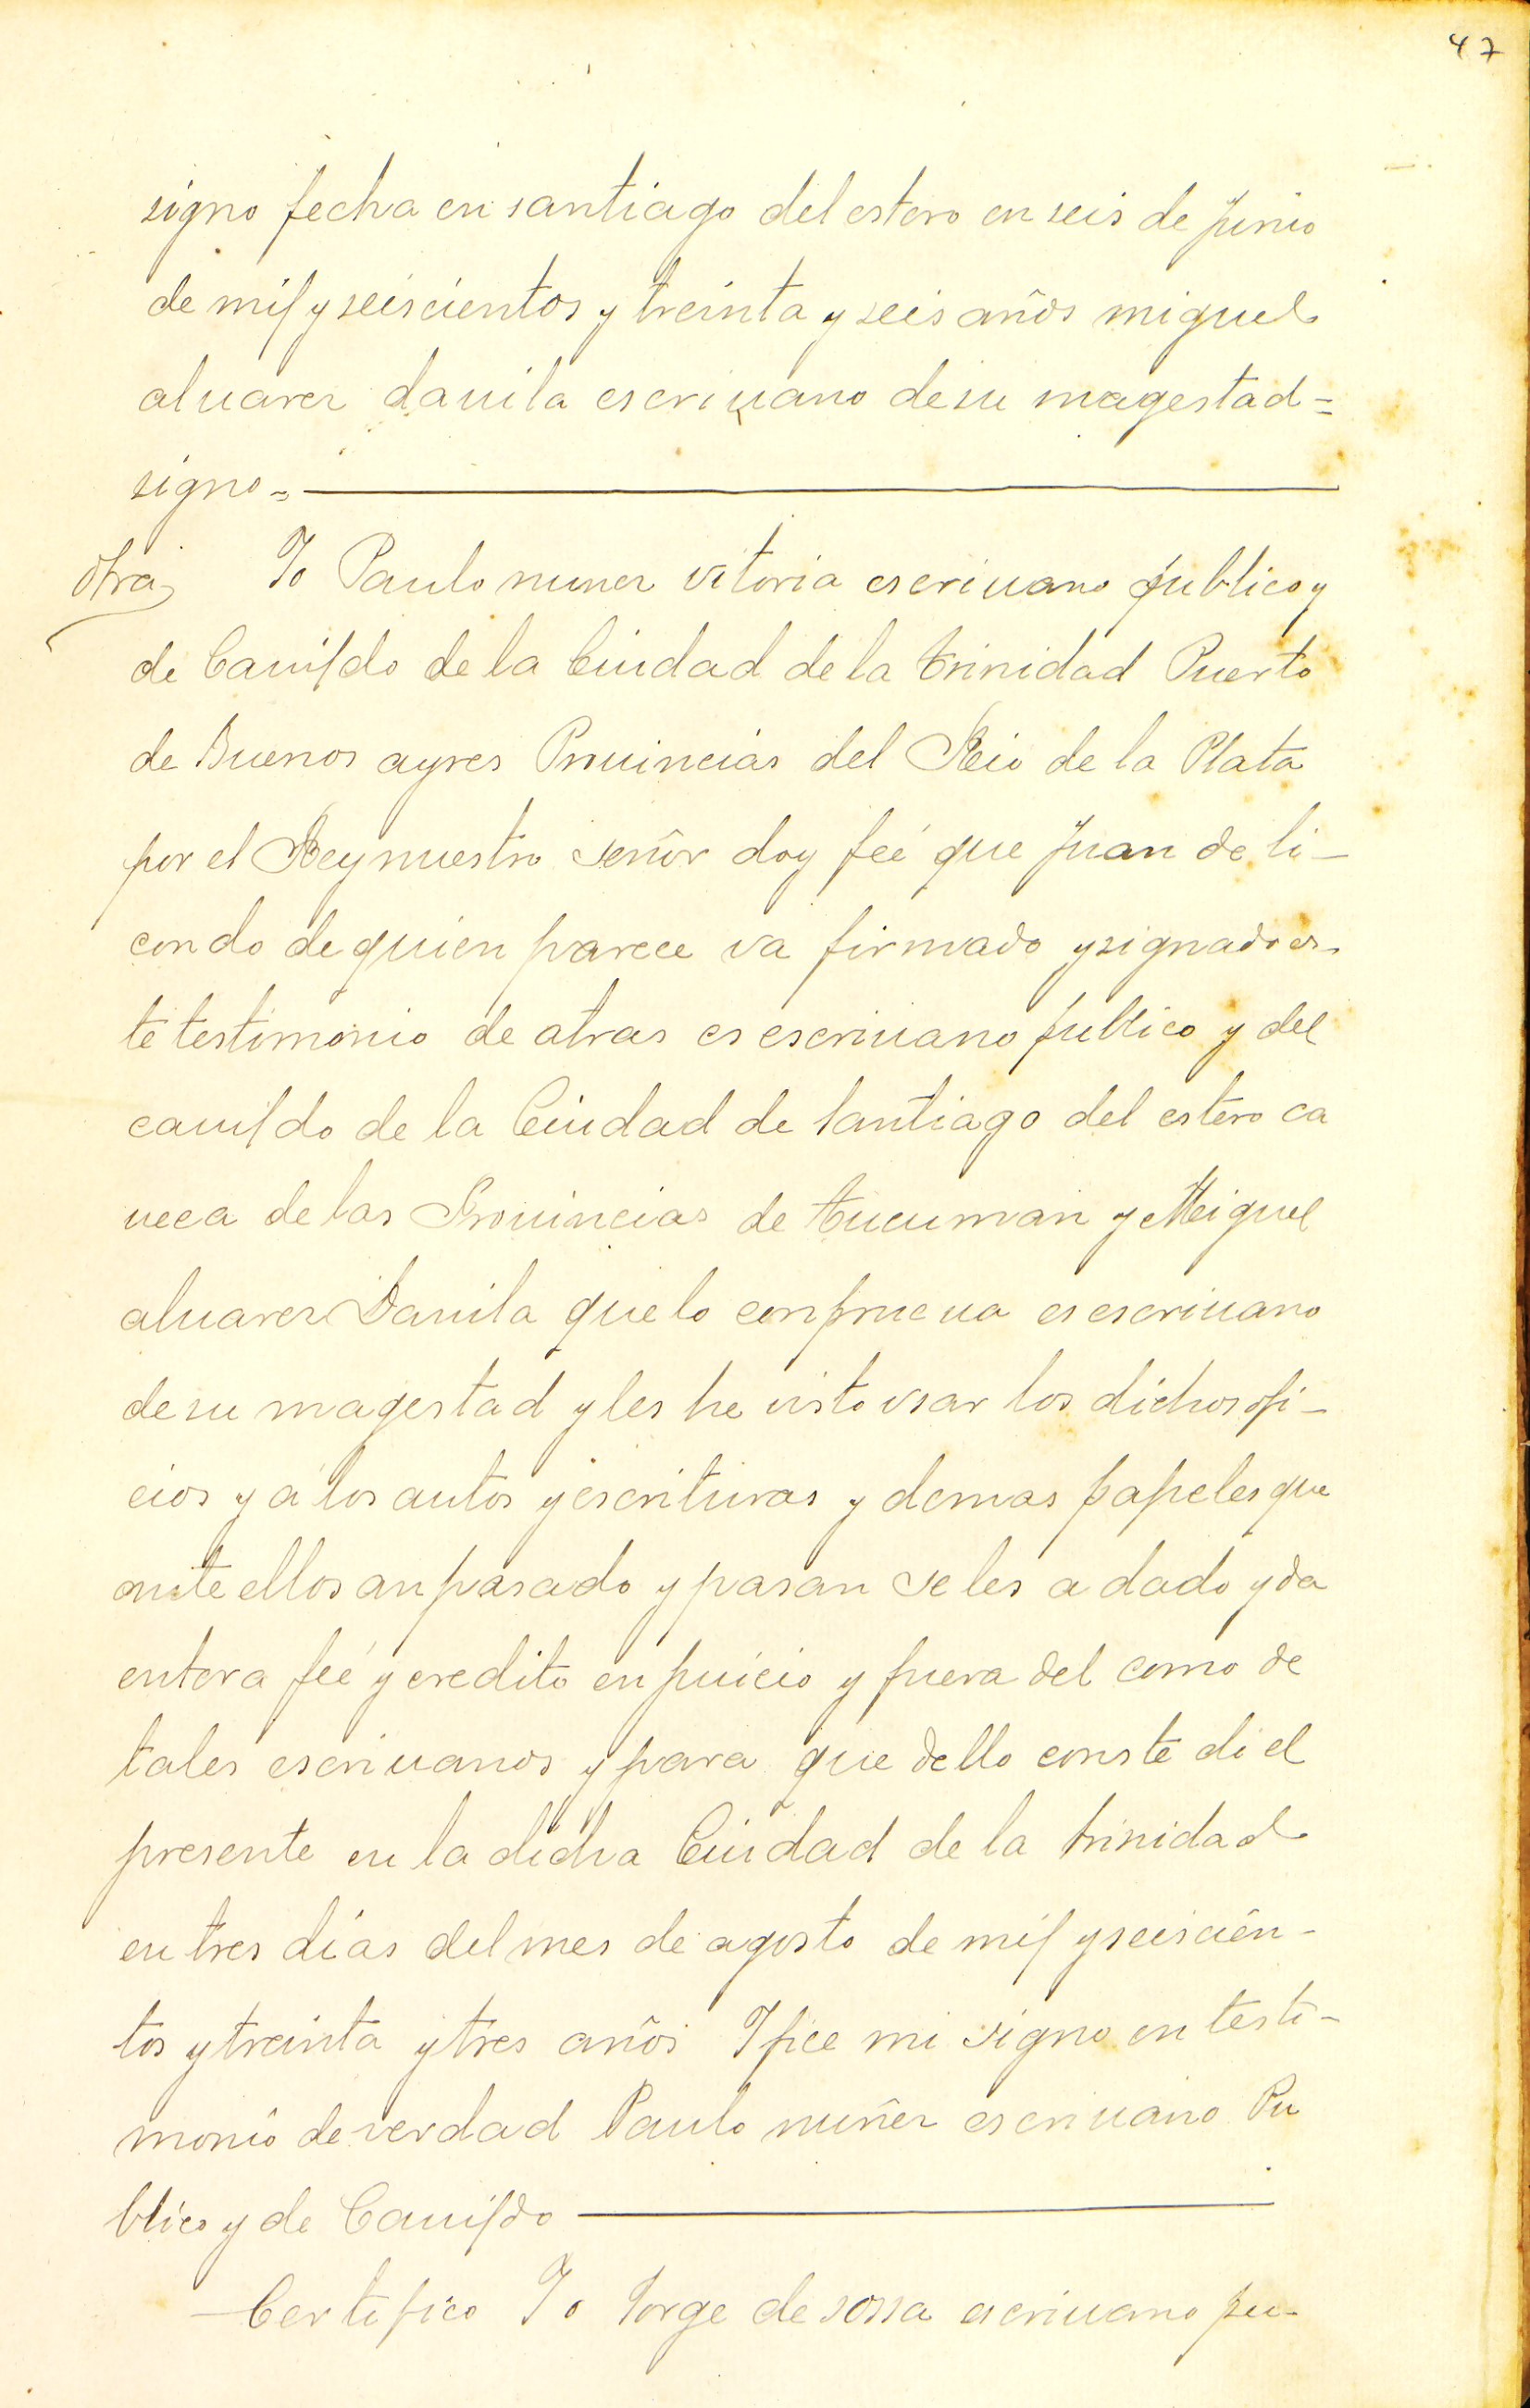 47
signo fecha en santiago del estero en seis de Junio
de mil y seiscientos y treinta y seis años miguel
aluarez dauila escriuano de su magestad =
signo =
otra Yo Paulo nunez vitoria escriuano publico y
de Cauildo de la Ciudad de la trinidad Puerto
de Buenos ayres Prouincias del Rio de la Plata
por el Rey nuestro señor doy feé que Juan de li-
condo de quien parece va firmado y signado es-
te testimonio de atras es escriuano publico y del
cauildo de la Ciudad de santiago del estero ca
ueca de las Prouincias de tucuman y Miguel
aluarez Dauila que lo conprueua es escriuano
de su magestad y les he visto vsar los dichos ofi-
cios y a los autos y escrituras y demas papeles que
ante ellos an pasado y pasan se les a dado y da
entera feé y credito en juicio y fuera del como de
tales escriuanos y para que dello conste di el
presente en la dicha Ciudad de la trinidad
en tres dias del mes de agosto de mil y seiscien-
tos y treinta y tres años Y fice mi signo en testi-
monio de verdad Paulo nuñez escriuano Pu
blico y de Cauildo
Certifico Yo Jorge de sossa escriuano pu-